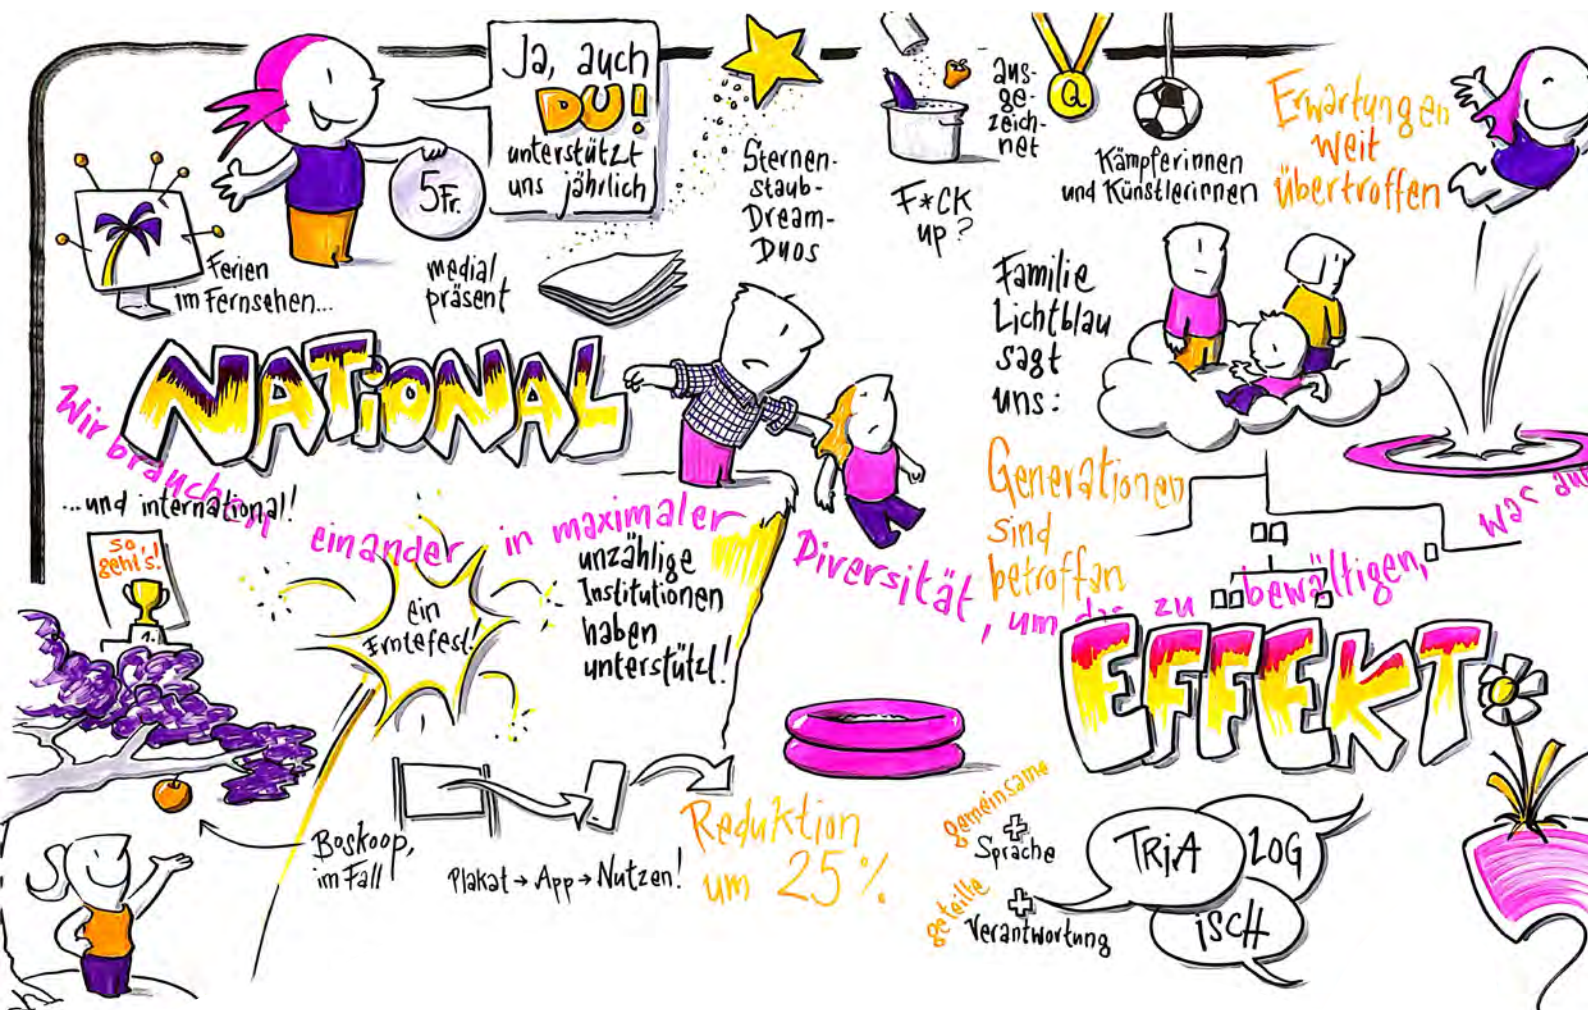 Ja, auch
DU!
unterstützt
uns jährlich
5Fr.
Ferien
im Fernsehen...
medial
präsent
Sternen-
staub-
Dream-
Duos
F*CK
up?
aus-
ge-
zeich-
net
Q
Kämpferinnen
und Künstlerinnen
Erwartungen
weit
übertroffen
Familie
Lichtblau
sagt
uns:
Generationen
sind
betroffan
NATiONAL
...und international!
Wir brauchen einander in maximaler Diversität, um das zu bewältigen, was
so
geht's!
1.
ein
Erntefest!
unzählige
Institutionen
haben
unterstützt!
EFFEKT
Boskoop,
im Fall
Plakat → App → Nutzen!
Reduktion
um 25%
gemeinsame
Sprache
geteilte
Verantwortung
TRiA
LOG
iSCH